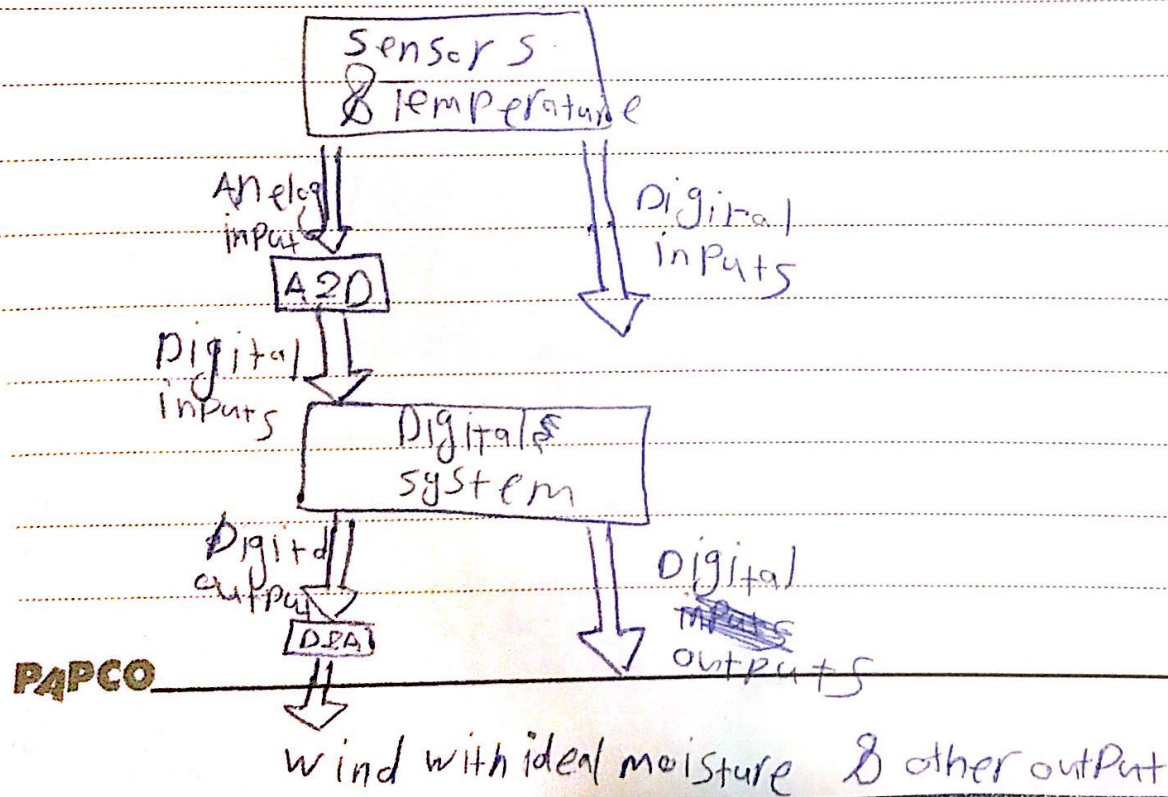 Sensors
& Temperature
Anelog
input
Digital
inputs
A2D
Digital
inputs
Digital
system
Digital
output
Digital
outputs
D2A
PAPCO
wind with ideal moisture & other output